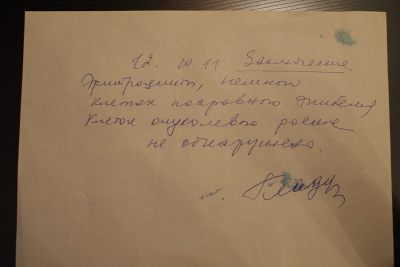 12. 10 11 Заключение
Эритроциты, немного
клеток покровного эпителия
Клеток опухолевого роста
не обнаружено.